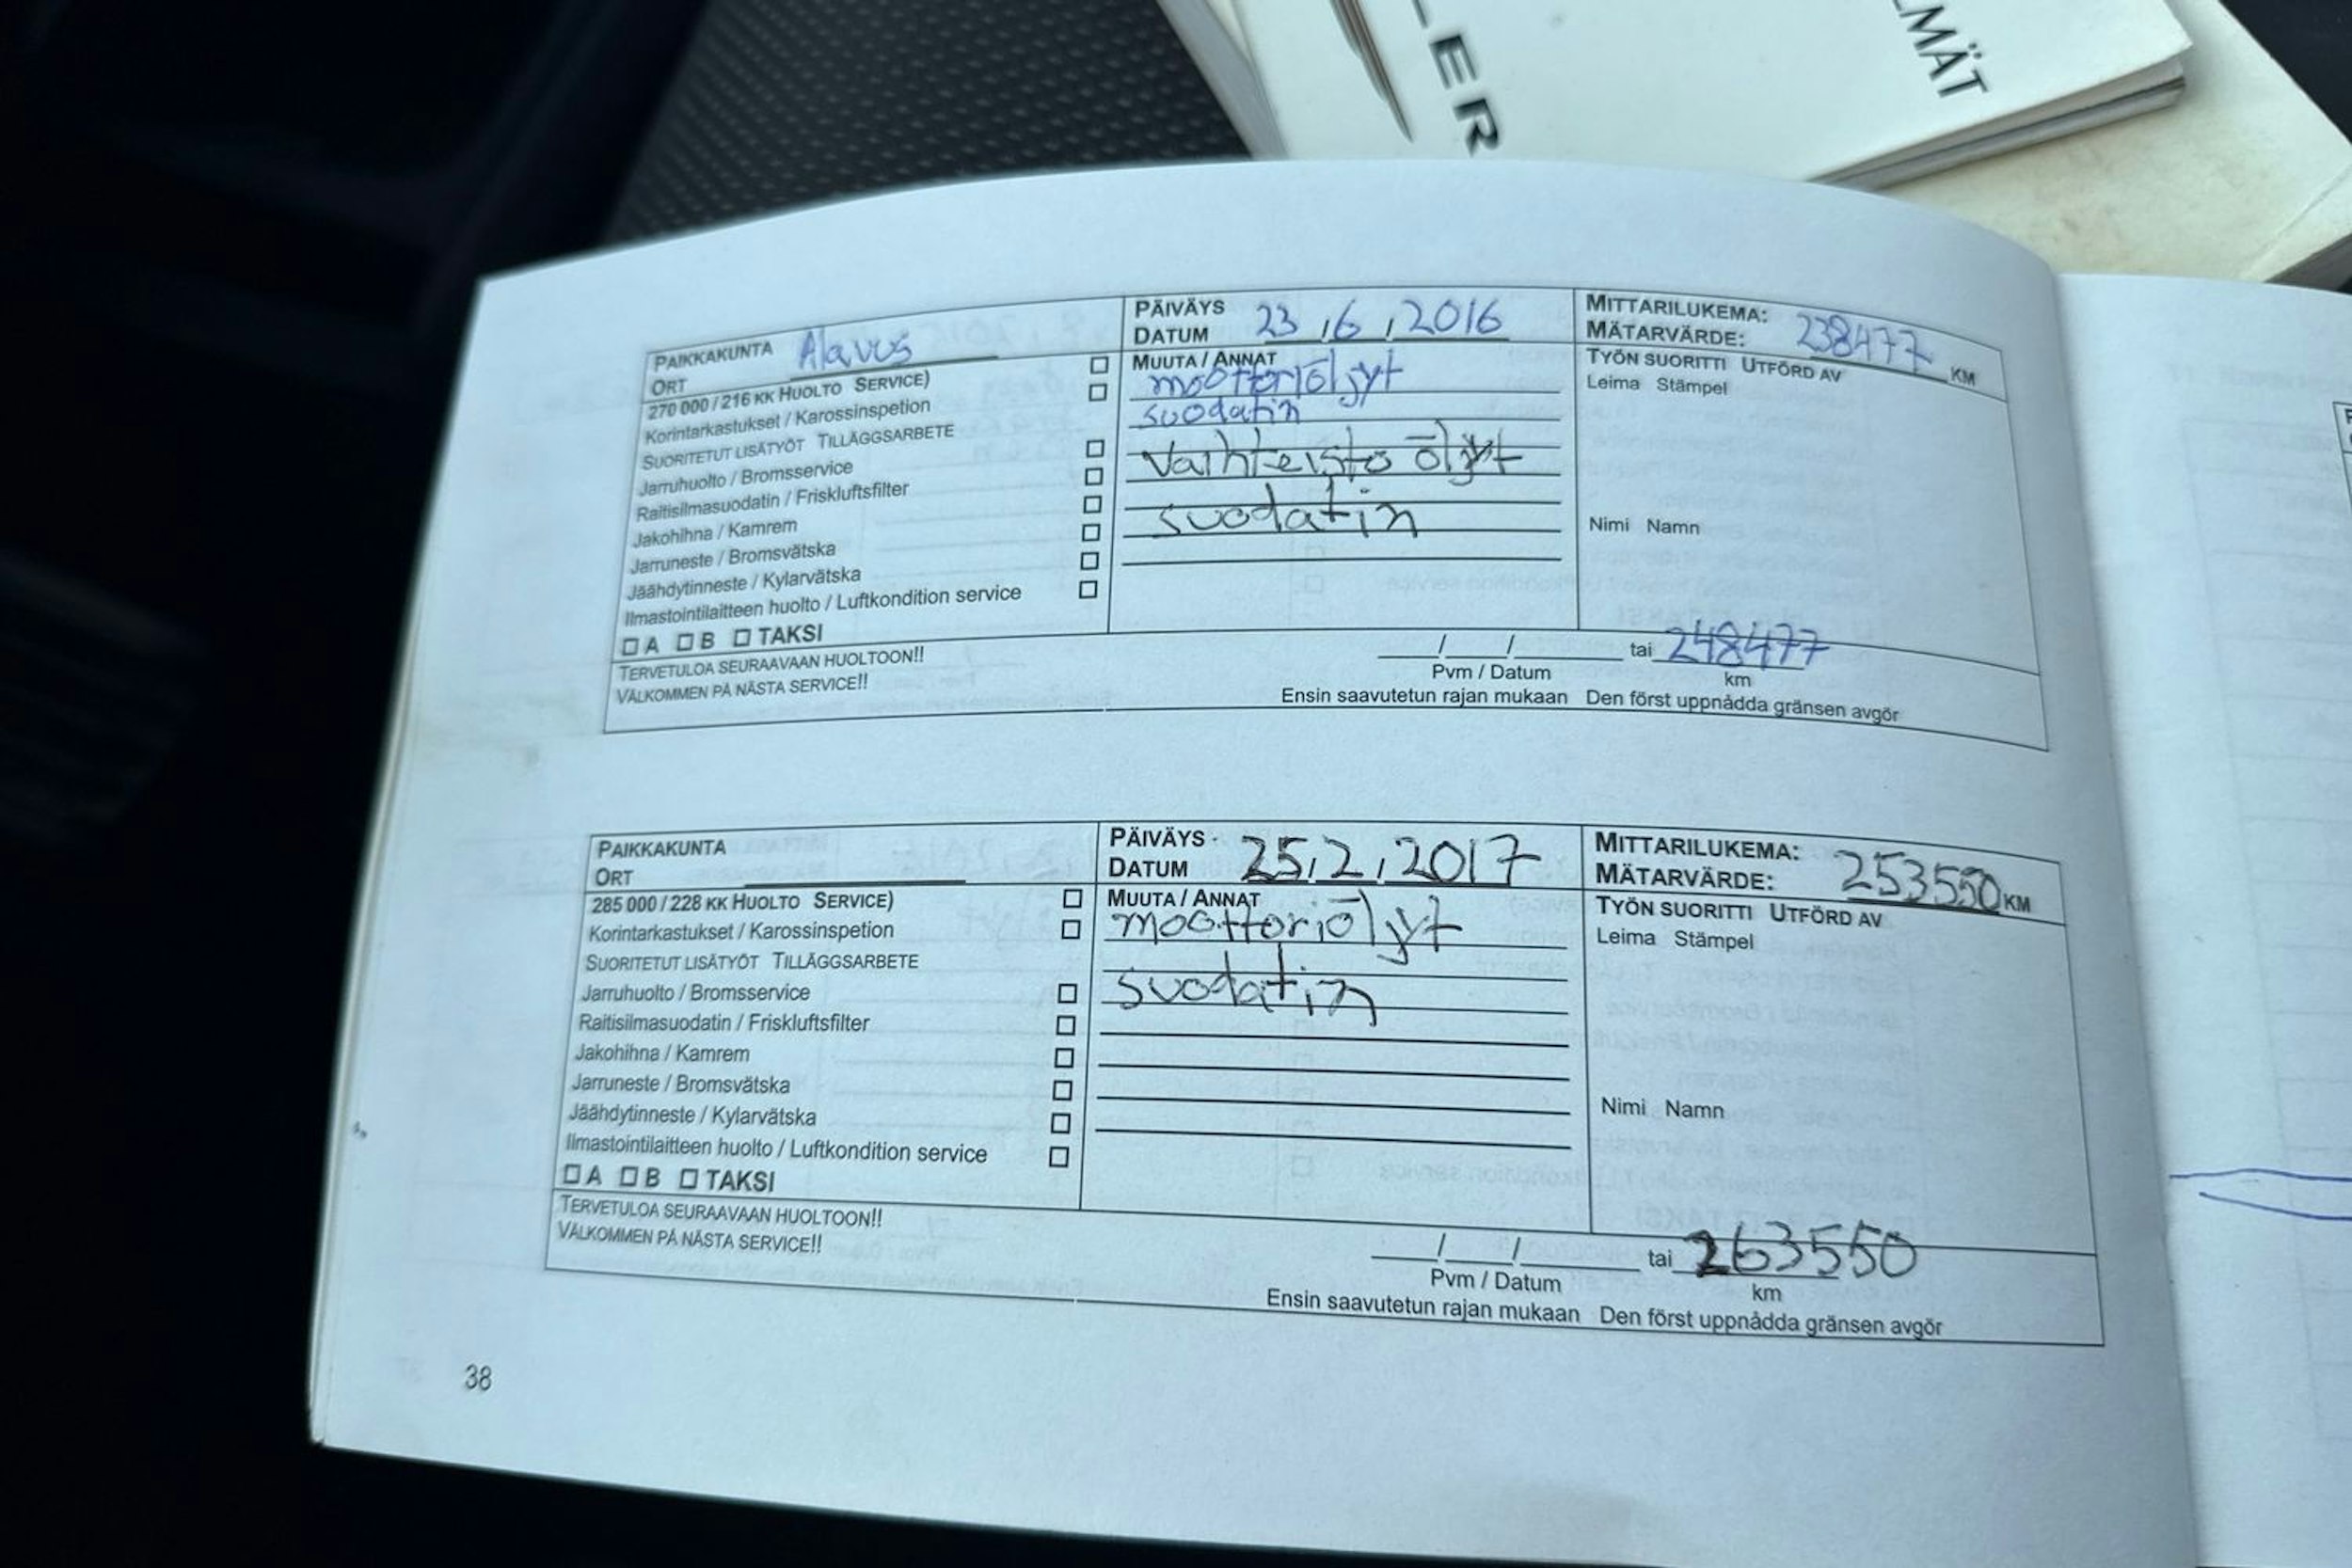 LER
LMÄT
PAIKKAKUNTA Alavus
ORT
270 000 / 216 KK HUOLTO SERVICE)
Korintarkastukset / Karossinspetion
SUORITETUT LISÄTYÖT TILLÄGGSARBETE
Jarruhuolto / Bromsservice
Raitisilmasuodatin / Friskluftsfilter
Jakohihna / Kamrem
Jarruneste / Bromsvätska
Jäähdytinneste / Kylarvätska
Ilmastointilaitteen huolto / Luftkondition service
A B TAKSI
PÄIVÄYS
DATUM 23 / 6 / 2016
MUUTA / ANNAT
moottoriöljyt
suodatin
vaihteisto öljyt
suodatin
MITTARILUKEMA:
MÄTARVÄRDE: 238477 KM
TYÖN SUORITTI UTFÖRD AV
Leima Stämpel
Nimi Namn
TERVETULOA SEURAAVAAN HUOLTOON!!
VÄLKOMMEN PÅ NÄSTA SERVICE!!
/ / tai 248477
Pvm / Datum km
Ensin saavutetun rajan mukaan Den först uppnådda gränsen avgör
PAIKKAKUNTA
ORT
285 000 / 228 KK HUOLTO SERVICE)
Korintarkastukset / Karossinspetion
SUORITETUT LISÄTYÖT TILLÄGGSARBETE
Jarruhuolto / Bromsservice
Raitisilmasuodatin / Friskluftsfilter
Jakohihna / Kamrem
Jarruneste / Bromsvätska
Jäähdytinneste / Kylarvätska
Ilmastointilaitteen huolto / Luftkondition service
A B TAKSI
PÄIVÄYS
DATUM 25 / 2 / 2017
MUUTA / ANNAT
moottoriöljyt
suodatin
MITTARILUKEMA:
MÄTARVÄRDE: 253550 KM
TYÖN SUORITTI UTFÖRD AV
Leima Stämpel
Nimi Namn
TERVETULOA SEURAAVAAN HUOLTOON!!
VÄLKOMMEN PÅ NÄSTA SERVICE!!
/ / tai 263550
Pvm / Datum km
Ensin saavutetun rajan mukaan Den först uppnådda gränsen avgör
38